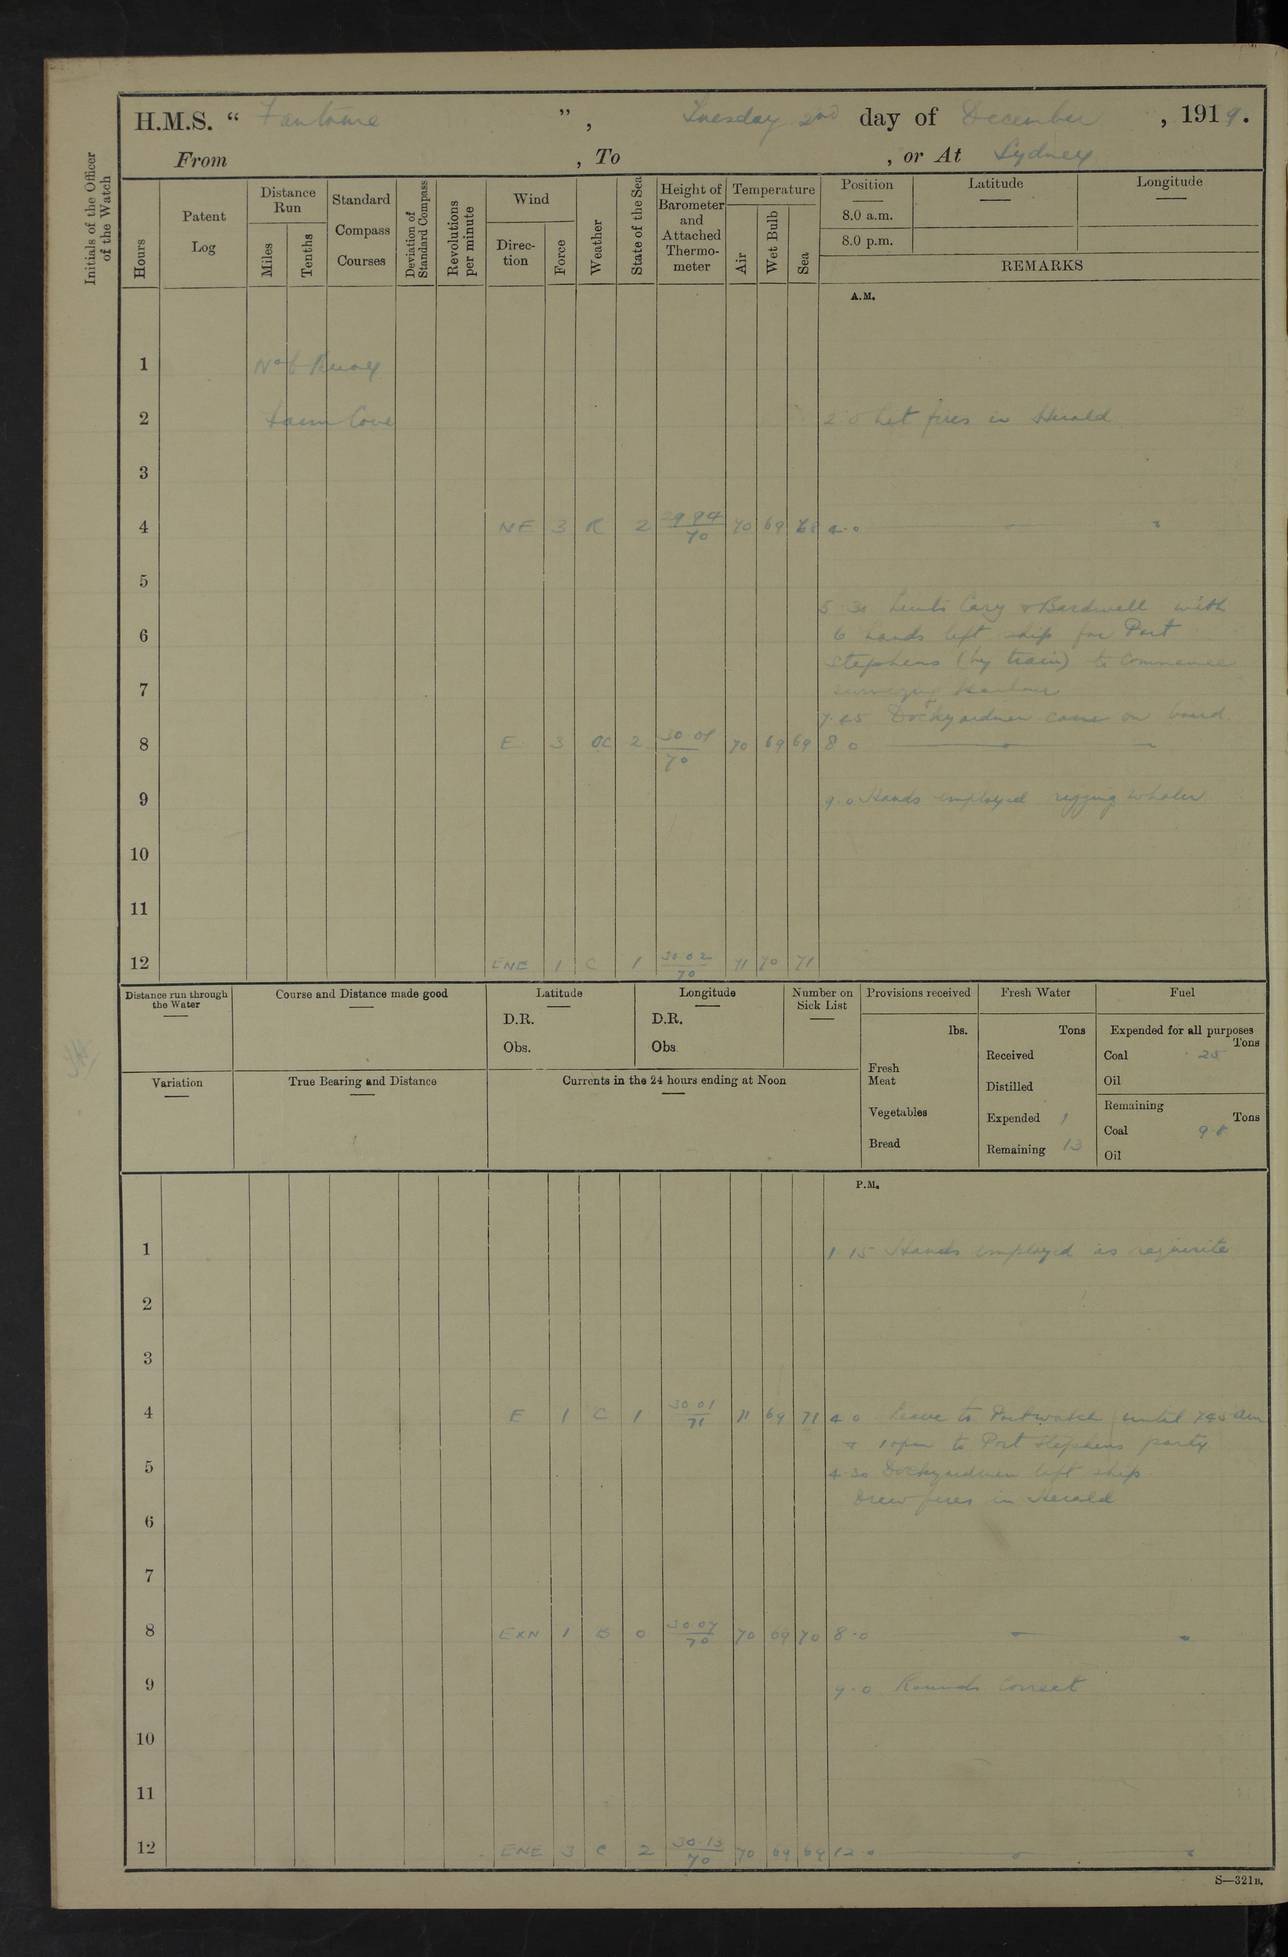 H.M.S. “ Fantome ”, Tuesday 2nd day of December, 1919.
From , To , or At Sydney
Initials of the Officer of the Watch
Hours
Patent Log
Distance Run
Miles
Tenths
Standard Compass Courses
Deviation of Standard Compass
Revolutions per minute
Wind
Direc-tion
Force
Weather
State of the Sea
Height of Barometer and Attached Thermo-meter
Temperature
Air
Wet Bulb
Sea
Position
8.0 a.m.
8.0 p.m.
Latitude
Longitude
REMARKS
A.M.
1 No 6 Buoy
2 Farm Cove 2.0 Let fires in Herald
3
4 NE 3 R 2 29.94/70 70 69 68 4.0
5
5.30 Lieuts Cary & Bardwell with
6 6 hands left ship for Port
Stephens (by train) to commence
7 surveying Harbour
7.45 Dockyardmen came on board
8 E 3 OC 2 30.01/70 70 69 69 8.0
9 9.0 Hands employed rigging whaler
10
11
12 ENE 1 C 1 30.02/70 71 70 71
Distance run through the Water
Course and Distance made good
Latitude
D.R.
Obs.
Longitude
D.R.
Obs.
Number on Sick List
Provisions received
lbs.
Fresh Meat
Vegetables
Bread
Fresh Water
Tons
Received
Distilled
Expended 1
Remaining 13
Fuel
Expended for all purposes
Tons
Coal .25
Oil
Remaining
Tons
Coal 9.8
Oil
Variation
True Bearing and Distance
Currents in the 24 hours ending at Noon
P.M.
1 1.15 Hands employed as requisite
2
3
4 E 1 C 1 30.01/71 71 69 71 4.0 Leave to Port watch until 7.45 am
& 10pm to Port Stephens party
5 4.30 Dockyardmen left ship
Drew fires in Herald
6
7
8 ExN 1 B 0 30.07/70 70 69 70 8.0
9 9.0 Rounds Correct
10
11
12 ENE 3 C 2 30.13/70 70 69 69 12.0
S—321B.